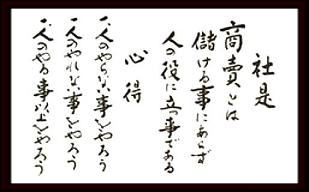 社是
商賣とは
儲ける事にあらず
人の役に立つ事である
心得
一、人のやらない事をやろう
一、人のやれない事をやろう
一、人のやる事以上をやろう